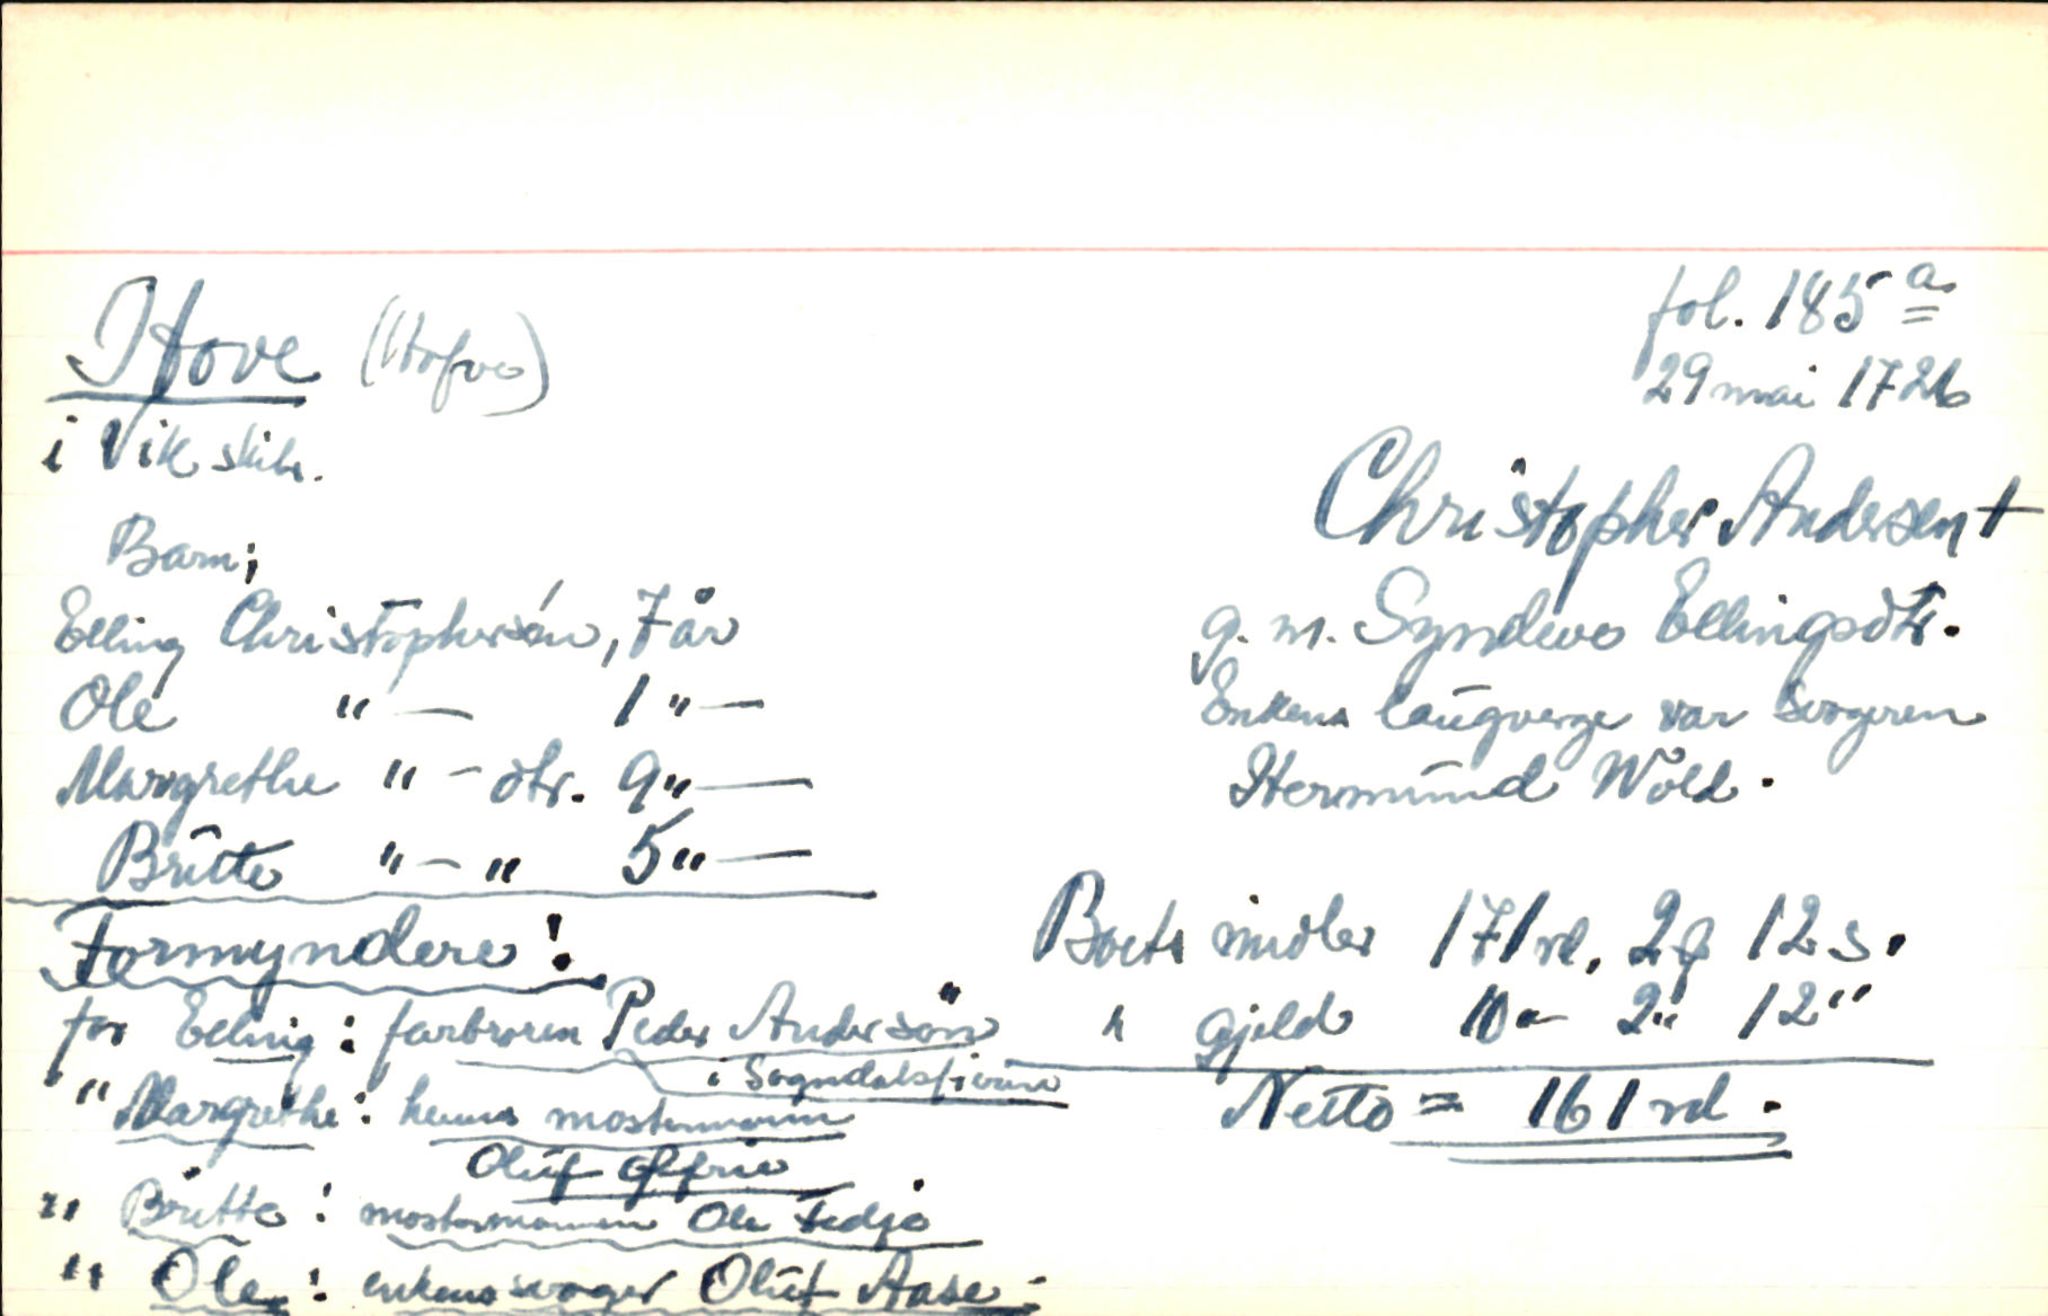 Hove (Hofve)
i Vik skibr.
fol. 185 a
29 mai 1726
Christopher Andersen †
g. m. Syndeve Ellingsdtr.
Enkens laugverge var svogeren
Hermund Wold.
Barn;
Elling Christophersen, 7 år
Ole " — 1 " —
Margrethe " - dtr. 9 " —
Britte " - " 5 " —
Boets midler 171 rd. 2 12 s.
" gjeld 10 - 2 " 12 "
Netto = 161 rd.
Formyndere:
for Elling: farbroren Peder Anderson
i Sogndalsfierin
" Margrethe: hennes mostermann
Oluf
" Britte: mostermannen Ole Fedje
" Ole: enkens svoger Oluf Aase -